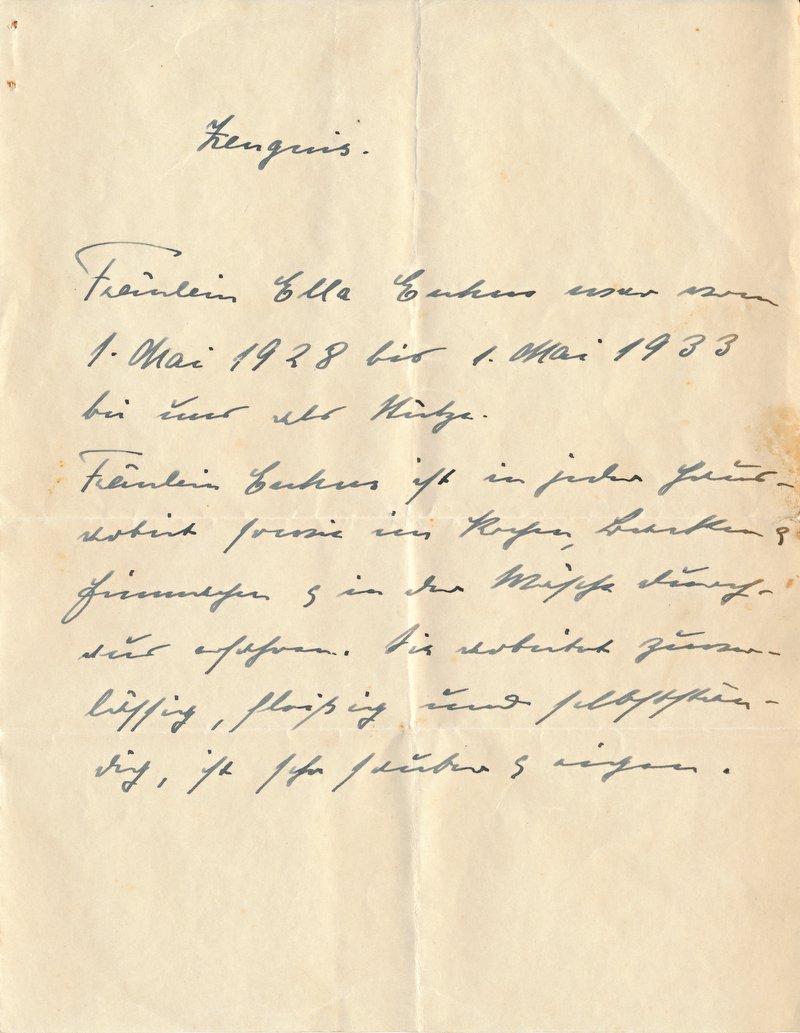 Zeugnis.
Fräulein Ella Enkus war vom
1. Mai 1928 bis 1. Mai 1933
bei uns als Stütze.
Fräulein Enkus ist in jeder Haus-
arbeit sowie im Kochen, Backen &
Einmachen & in der Wäsche durch-
aus erfahren. Sie arbeitet zuver-
lässig, fleißig und selbststän-
dig, ist sehr sauber & eigen.